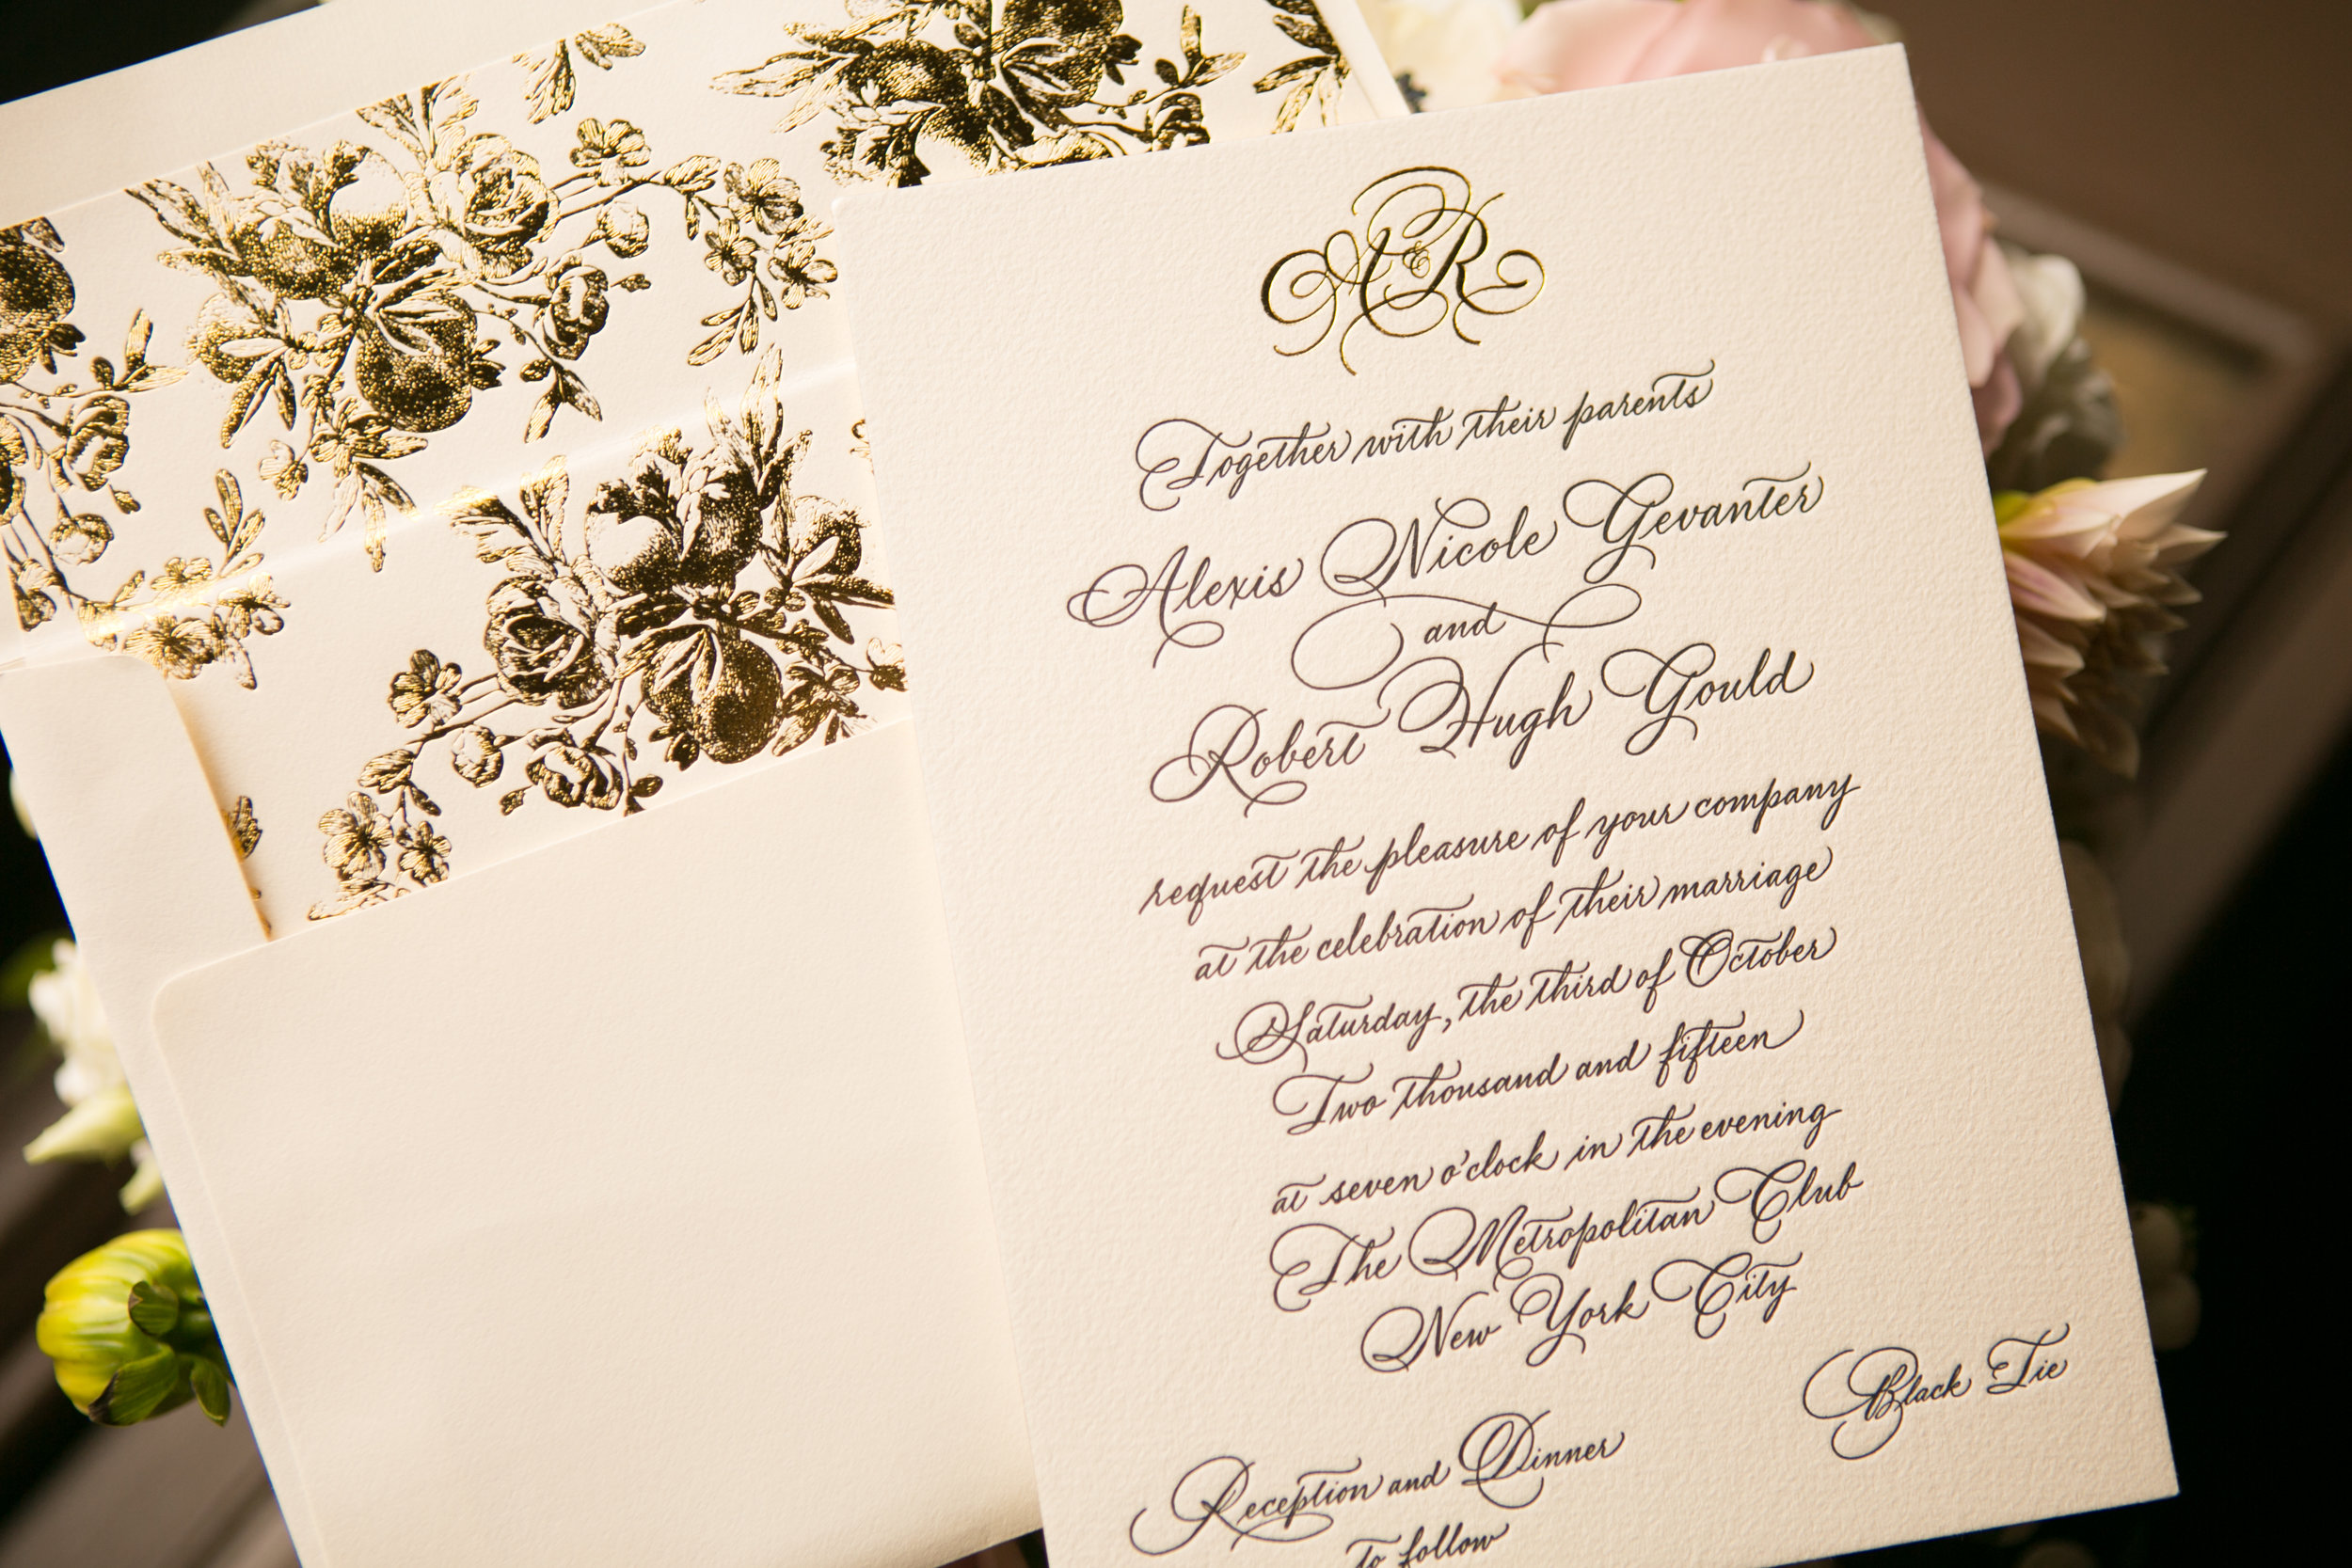 A & R
Together with their parents
Alexis Nicole Gevanter
and
Robert Hugh Gould
request the pleasure of your company
at the celebration of their marriage
Saturday, the third of October
Two thousand and fifteen
at seven o'clock in the evening
The Metropolitan Club
New York City
Black Tie
Reception and Dinner
to follow